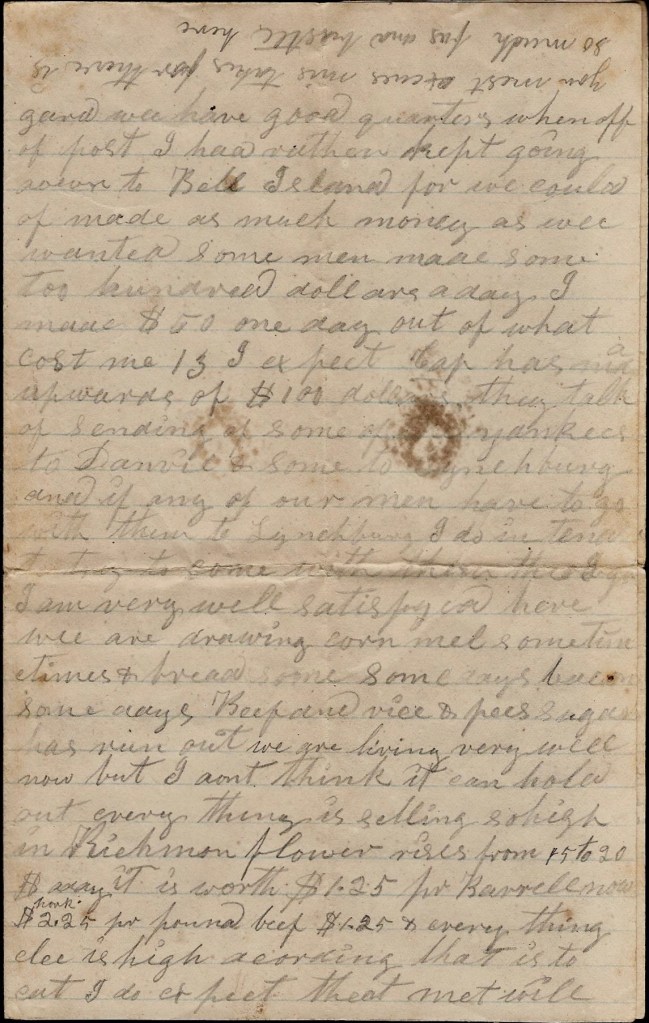 you must excus mis takes for there is
so much fus and hustle here
gard wee have good quarters when off
of post I had rathen kept going
down to Bell Island for we could
of made as much money as wee
wanted some men made some
too hundred dollars a day I
made $50 one day out of what
cost me 13 I expect Cap has mad
upwards of $100 dollars they talk
of sending of some of yankees
to Danvil & some to Lynchburg
and if any of our men have to go
with them to Lynchburg I do in tend
t try to come with them tho I am
I am very well satisfyed here
wee are drawing corn mel sometim
etimes & bread some some days bacon
some days Beef and rice & pees sugar
has run out we are living very well
now but I dont think it can hold
out every thing is selling so high
in Richmon flower rises from 15 to 20
$ a day it is worth $1.25 pr Barrell now
pork
$2.25 pr pound beef $1.25 & every thing
elce is high acording that is to
eat I do expect that met will